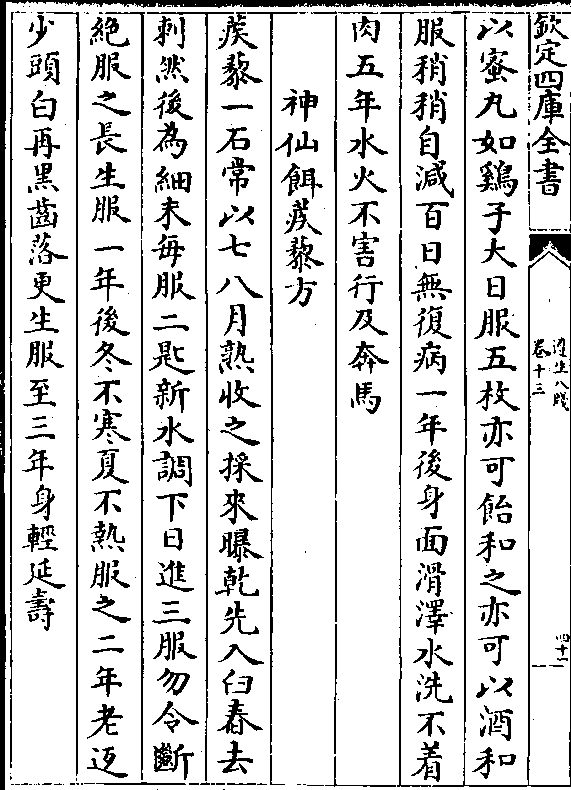 欽定四庫全書
遵生八牋
卷十三
四十二
以蜜丸如鷄子大日服五枚亦可飴和之亦可以酒和
服稍稍自減百日無復病一年後身面滑澤水洗不着
肉五年水火不害行及奔馬
神仙餌蒺藜方
蒺藜一石常以七八月熟收之採來曝乾先入臼舂去
刺然後為細末每服二匙新水調下日進三服勿令斷
絶服之長生服一年後冬不寒夏不熱服之二年老返
少頭白再黑齒落更生服至三年身輕延壽